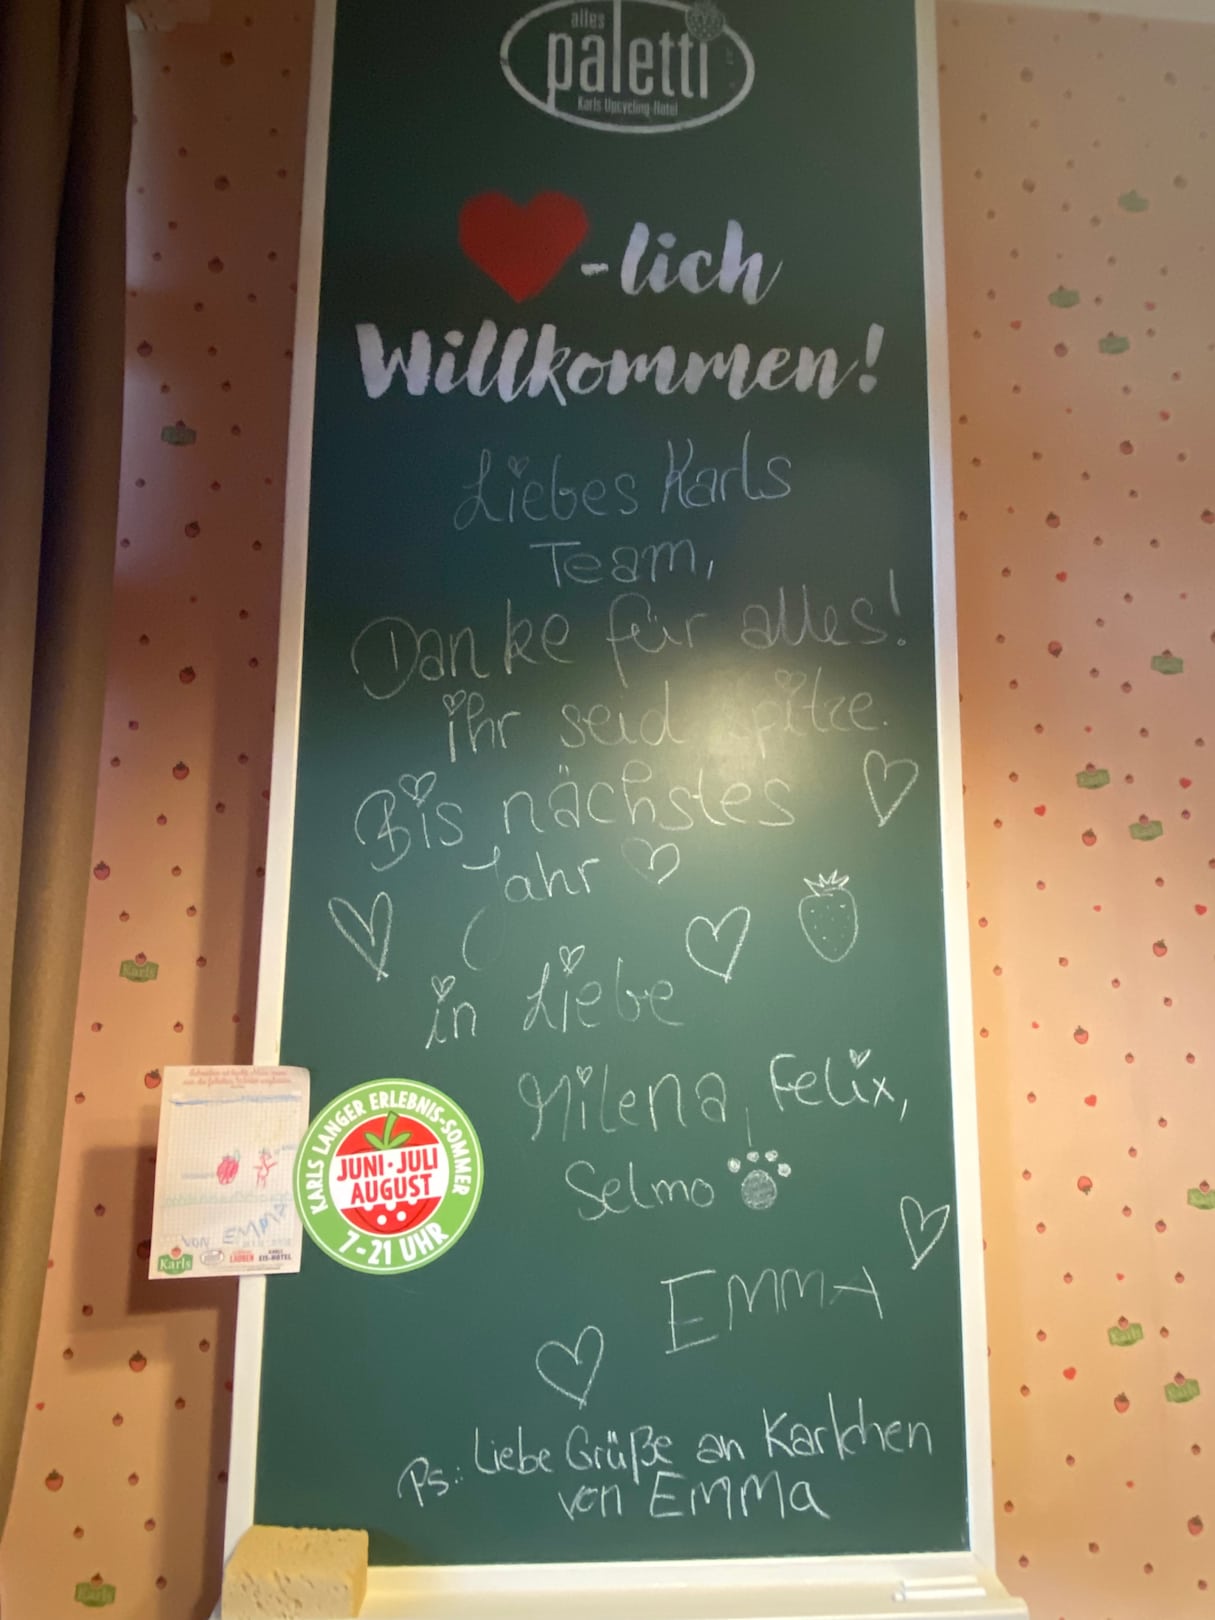 alles
paletti
Karls Upcycling-Hotel
-lich
Willkommen!
Liebes Karls
Team,
Danke für alles!
ihr seid spitze.
Bis nächstes
Jahr
in Liebe
Milena, Felix,
Selmo
EMMA
Ps.: Liebe Grüße an Karlchen
von EMMA
KARLS LANGER ERLEBNIS-SOMMER
JUNI·JULI
AUGUST
7-21 UHR
VON EMMA
Karls
EIS-HOTEL
Karls
Karls
Karls
Karls